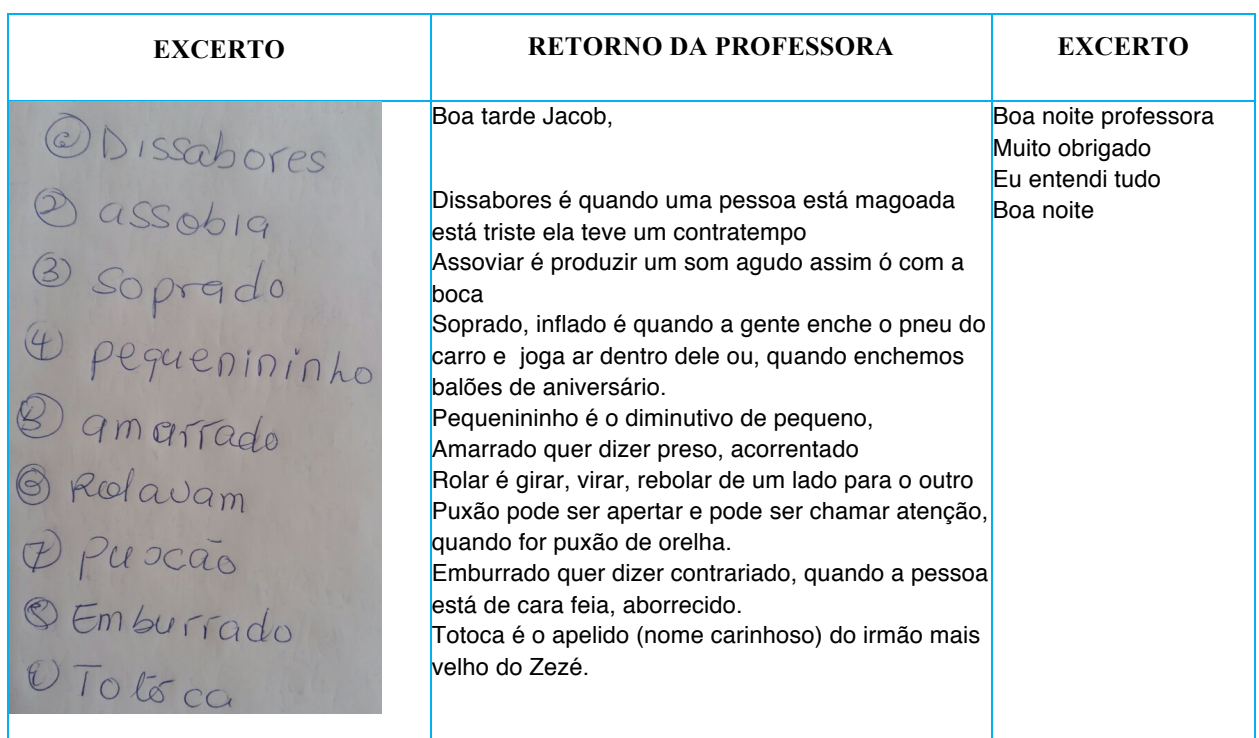 EXCERTO
RETORNO DA PROFESSORA
EXCERTO
Dissabores
② assobia
③ soprado
④ pequenininho
⑤ amarrado
⑥ Rolavam
⑦ Puxcão
⑧ Emburrado
Totóca
Boa tarde Jacob,
Dissabores é quando uma pessoa está magoada
está triste ela teve um contratempo
Assoviar é produzir um som agudo assim ó com a
boca
Soprado, inflado é quando a gente enche o pneu do
carro e joga ar dentro dele ou, quando enchemos
balões de aniversário.
Pequenininho é o diminutivo de pequeno,
Amarrado quer dizer preso, acorrentado
Rolar é girar, virar, rebolar de um lado para o outro
Puxão pode ser apertar e pode ser chamar atenção,
quando for puxão de orelha.
Emburrado quer dizer contrariado, quando a pessoa
está de cara feia, aborrecido.
Totoca é o apelido (nome carinhoso) do irmão mais
velho do Zezé.
Boa noite professora
Muito obrigado
Eu entendi tudo
Boa noite